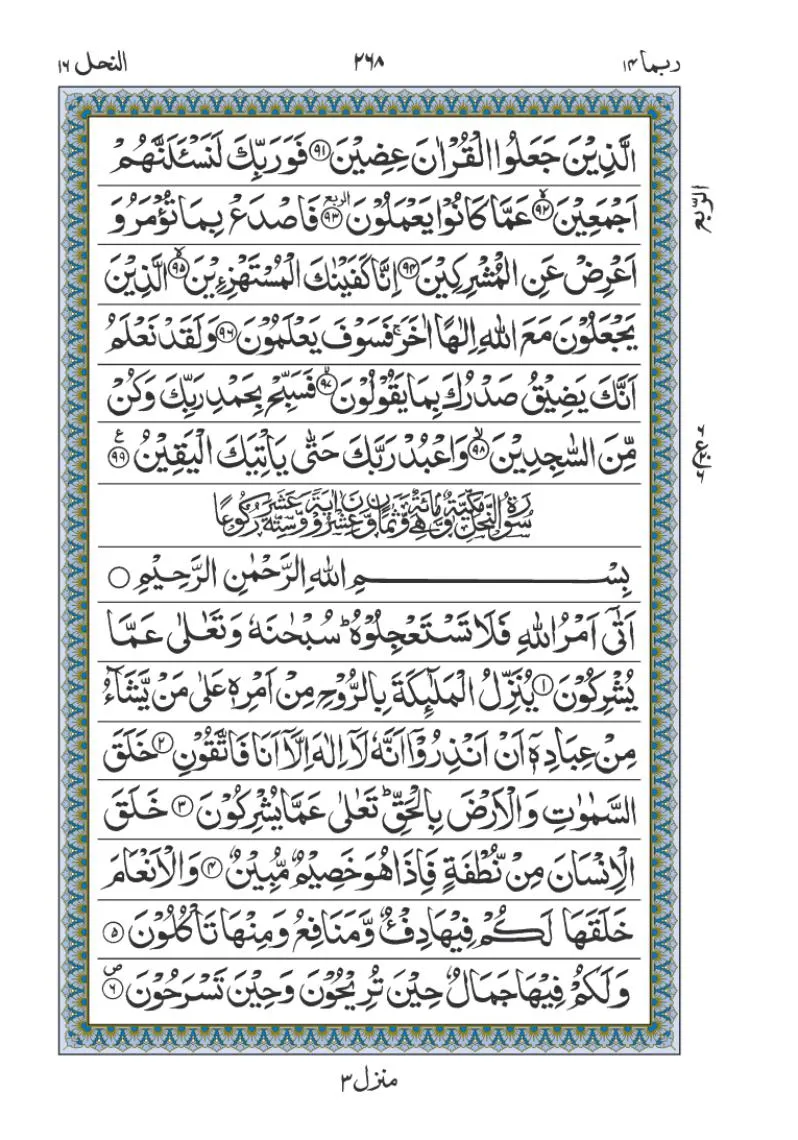 ربما ۱۴
۲۶۸
النحل ۱۶
الَّذِيْنَ جَعَلُوا الْقُرْاٰنَ عِضِيْنَ ۹۱ فَوَرَبِّكَ لَنَسْـَٔلَنَّهُمْ
اَجْمَعِيْنَ ۙ۹۲ عَمَّا كَانُوْا يَعْمَلُوْنَ الربع ۹۳ فَاصْدَعْ بِمَا تُؤْمَرُ وَ
اَعْرِضْ عَنِ الْمُشْرِكِيْنَ ۹۴ اِنَّا كَفَيْنٰكَ الْمُسْتَهْزِءِيْنَ ۙ۹۵ الَّذِيْنَ
يَجْعَلُوْنَ مَعَ اللّٰهِ اِلٰهًا اٰخَرَ ۚ فَسَوْفَ يَعْلَمُوْنَ ۹۶ وَلَقَدْ نَعْلَمُ
اَنَّكَ يَضِيْقُ صَدْرُكَ بِمَا يَقُوْلُوْنَ ۙ۹۷ فَسَبِّحْ بِحَمْدِ رَبِّكَ وَكُنْ
مِّنَ السّٰجِدِيْنَ ۙ۹۸ وَاعْبُدْ رَبَّكَ حَتّٰى يَاْتِيَكَ الْيَقِيْنُ ع ۹۹
سُوْرَةُ النَّحْلِ مَكِّيَّةٌ وَّهِيَ مِائَةٌ وَّثَمَانٍ وَّعِشْرُوْنَ اٰيَةً وَّسِتَّةَ عَشَرَ رُكُوْعًا
بِسْمِ اللّٰهِ الرَّحْمٰنِ الرَّحِيْمِ ○
اَتٰۤى اَمْرُ اللّٰهِ فَلَا تَسْتَعْجِلُوْهُ ؕ سُبْحٰنَهٗ وَتَعٰلٰى عَمَّا
يُشْرِكُوْنَ ۱ يُنَزِّلُ الْمَلٰٓئِكَةَ بِالرُّوْحِ مِنْ اَمْرِهٖ عَلٰى مَنْ يَّشَآءُ
مِنْ عِبَادِهٖۤ اَنْ اَنْذِرُوْۤا اَنَّهٗ لَاۤ اِلٰهَ اِلَّاۤ اَنَا فَاتَّقُوْنِ ۲ خَلَقَ
السَّمٰوٰتِ وَالْاَرْضَ بِالْحَقِّ ؕ تَعٰلٰى عَمَّا يُشْرِكُوْنَ ۳ خَلَقَ
الْاِنْسَانَ مِنْ نُّطْفَةٍ فَاِذَا هُوَ خَصِيْمٌ مُّبِيْنٌ ۴ وَالْاَنْعَامَ
خَلَقَهَا لَكُمْ فِيْهَا دِفْءٌ وَّمَنَافِعُ وَمِنْهَا تَاْكُلُوْنَ ۵
وَلَكُمْ فِيْهَا جَمَالٌ حِيْنَ تُرِيْحُوْنَ وَحِيْنَ تَسْرَحُوْنَ ص ۶
الرّبع
منزل ۳